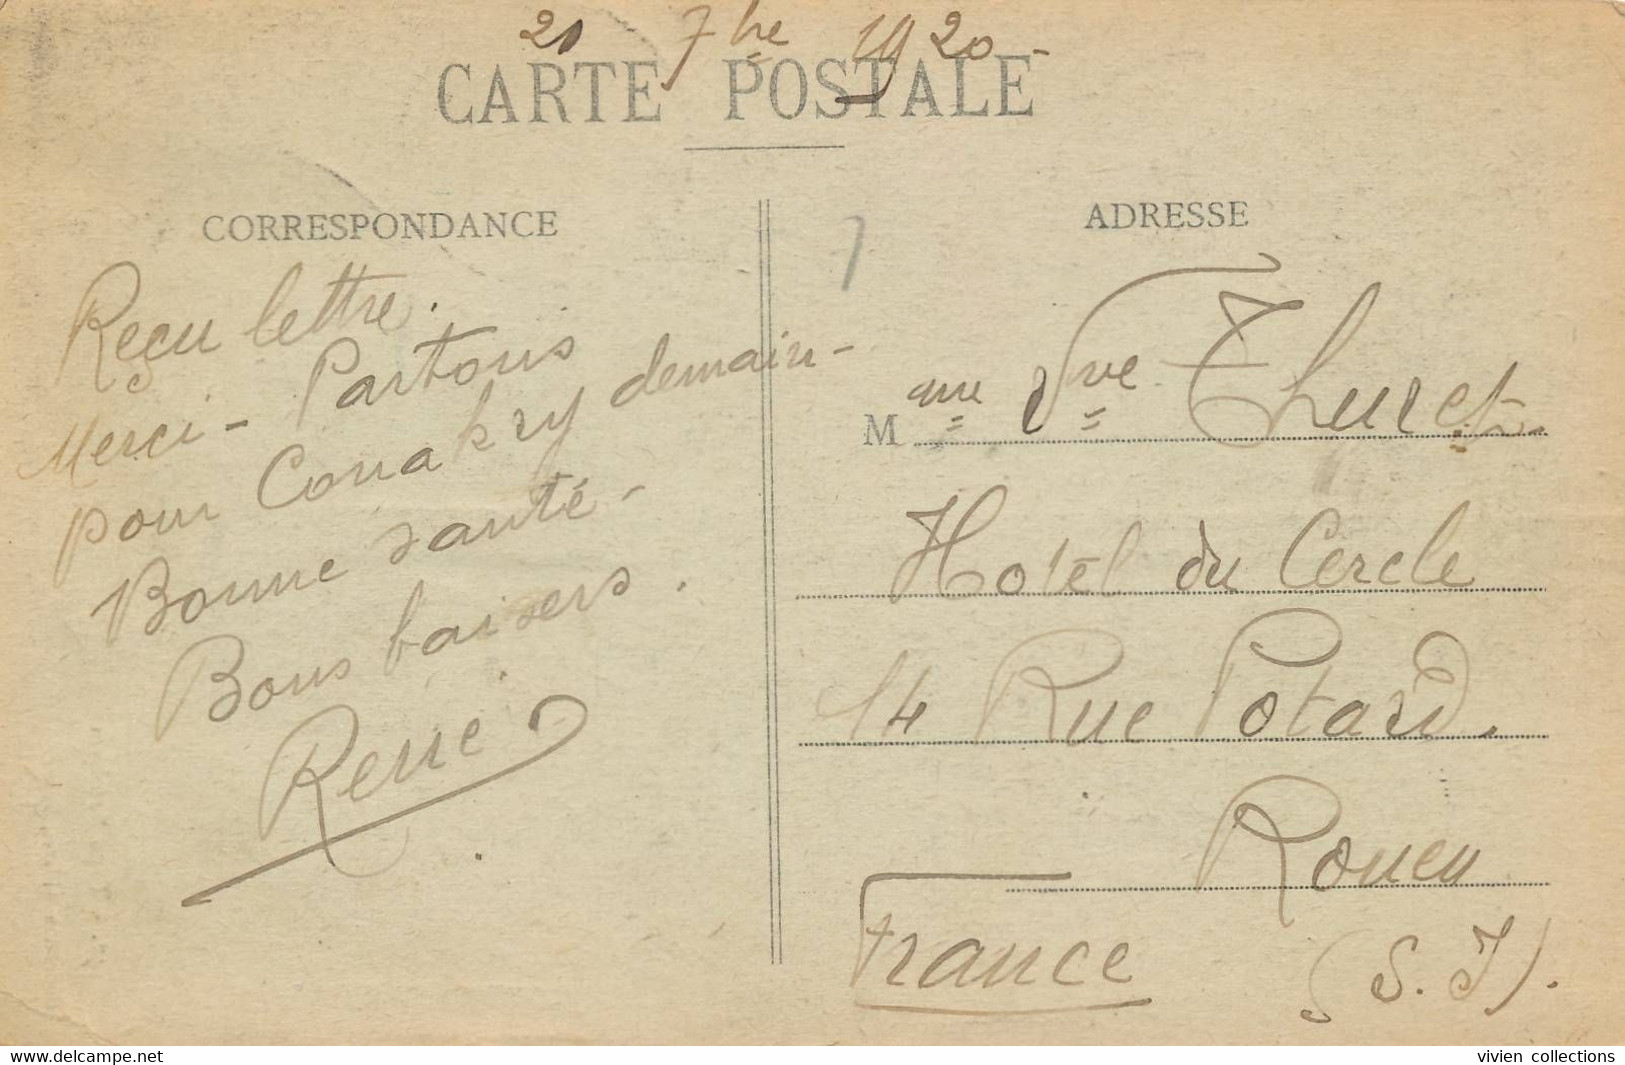 21 7bre 1920 -
CARTE POSTALE
CORRESPONDANCE
Reçu lettre.
Merci - Partons
pour Conakry demain -
Bonne santé -
Bons baisers.
René
ADRESSE
Mme Vve Thuret.
Hotel du Cercle
14 Rue Potard.
Rouen
France (S. I).
delcampe.net
vivien collections